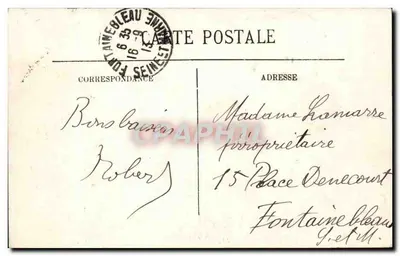 FONTAINEBLEAU SEINE ET MARNE
6 35
16 -9
13
CARTE POSTALE
CORRESPONDANCE
ADRESSE
Bons baisers
Robert
Madame Lamarre
propriétaire
15 Place Denecourt
Fontainebleau
S. et M.
CPAPHIL